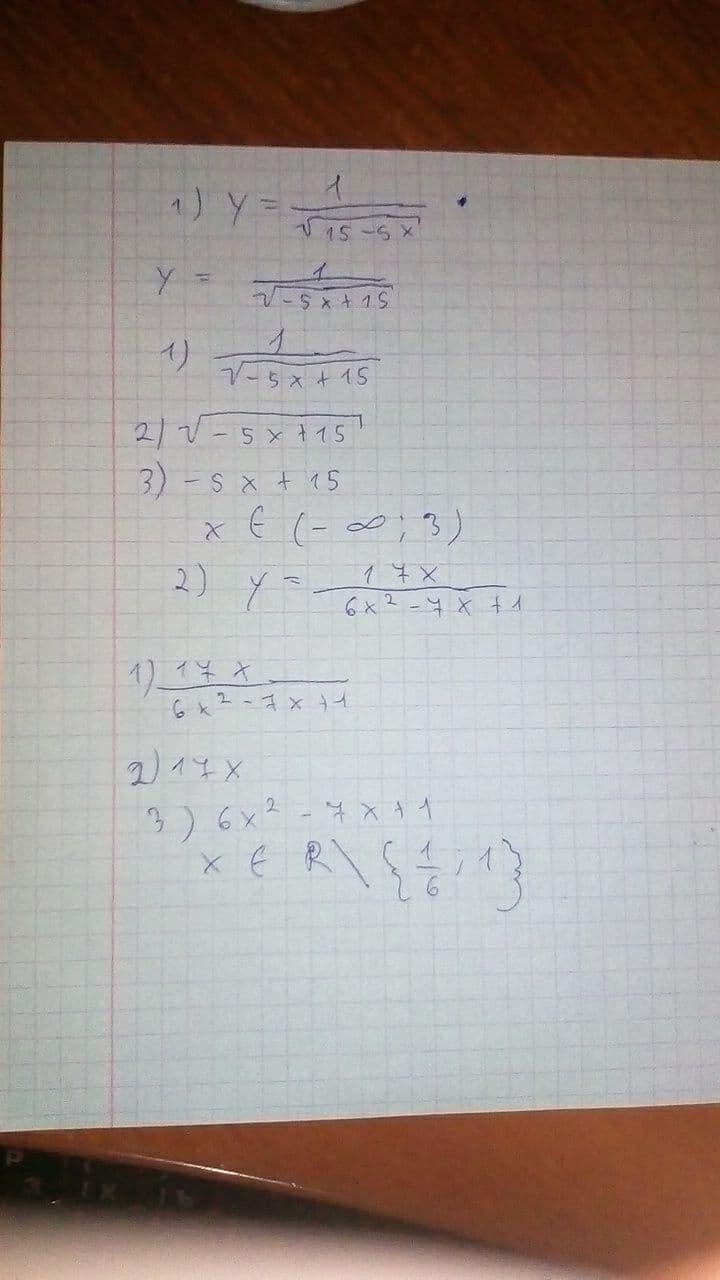 1) y = 1/√(15-5x)
y = 1/√(-5x+15)
1) 1/√(-5x+15)
2) √(-5x+15)
3) -5x+15
x ∈ (-∞; 3)
2) y = 17x/(6x²-7x+1)
1) 17x/(6x²-7x+1)
2) 17x
3) 6x²-7x+1
x ∈ R\{1/6; 1}